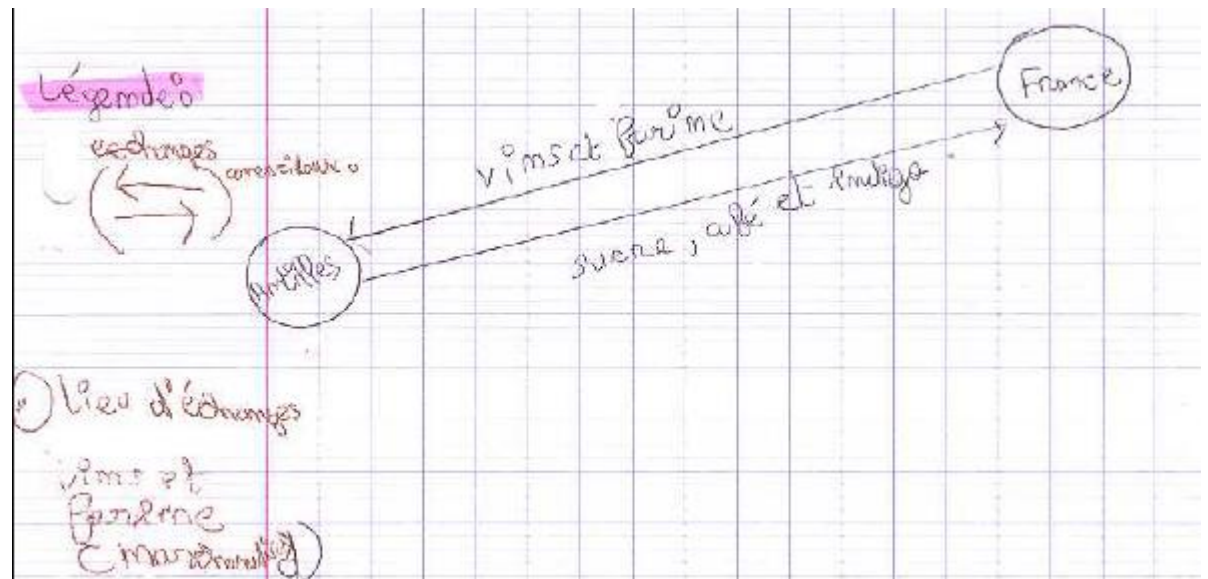 Légende :
échanges
commerciaux :
France
vins et farine
sucre, café et indigo
Antilles
lieu d'échanges
vins et
farine
(marchandises)